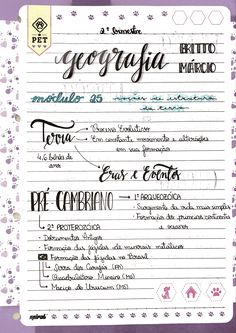 PET
2º bimestre
geografia
BRITTO
MÁRCIO
módulo 25 noções de estrutura da terra
Terra
→ Processo Evolutivo
→ Em constante movimento e alterações
em sua formação
4,6 bilhões de
anos
→ Eras e Eventos
PRÉ-CAMBRIANO
→ 1º ARQUEOZÓICA
• Surgimento da vida mais simples
• Formação dos primeiros continentes
e oceanos
→ 2º PROTEROZÓICA
• Dobramentos Antigos
• Formação das jazidas de minerais metálicos
Formação das jazidas no Brasil
→ Serra dos Carajás (PA)
→ Quadrilátero Mineiro (MG)
→ Maciço do Urucum (MS)